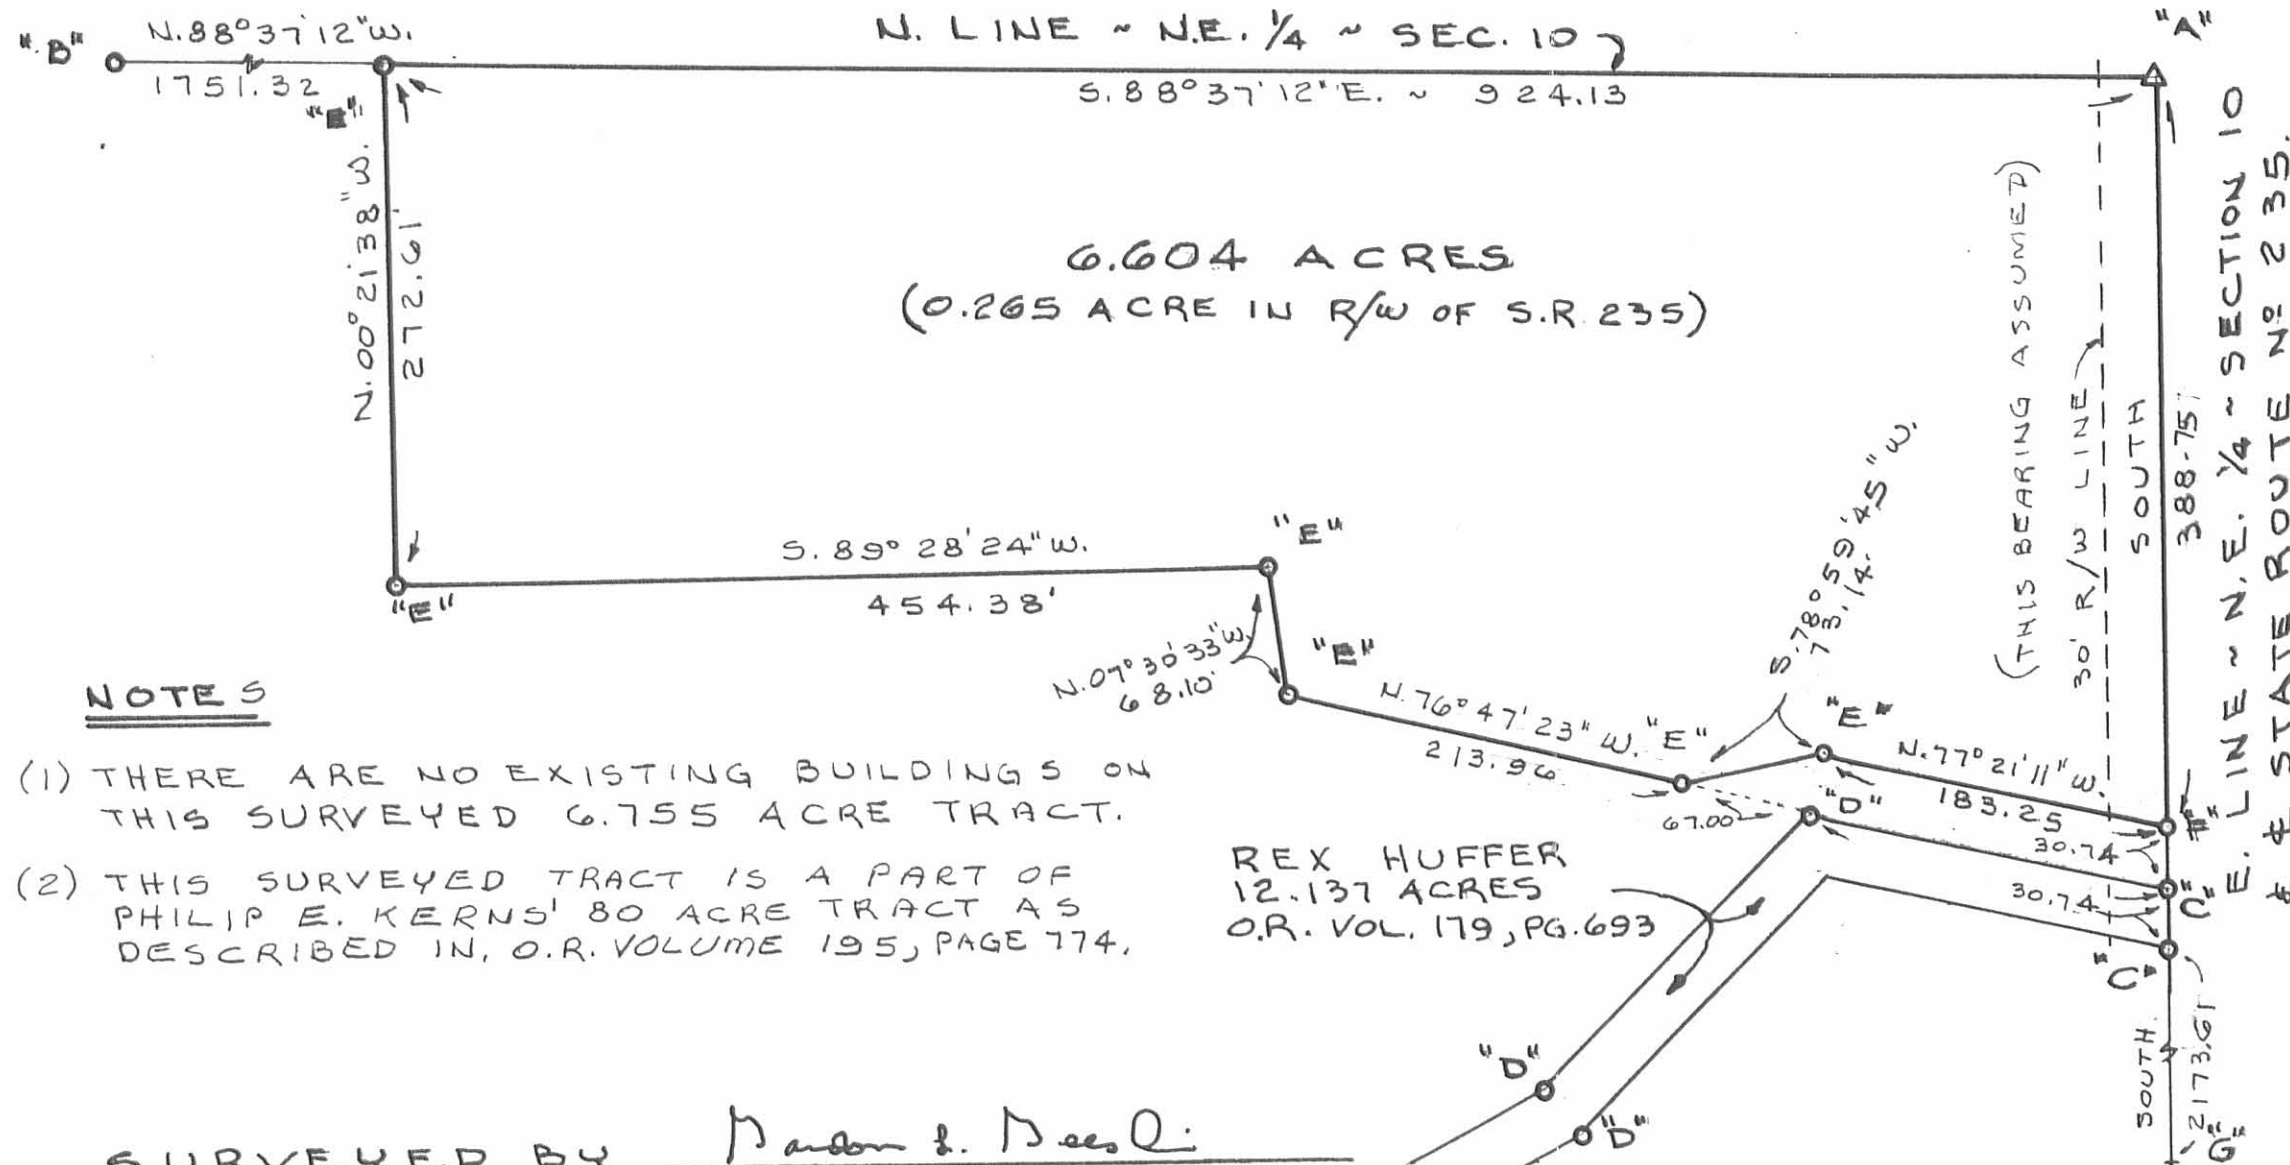 "B"
N.88°37'12"W.
1751.32
N. LINE ~ N.E. 1/4 ~ SEC. 10
S.88°37'12"E. ~ 924.13
"A"
"E"
N.00°21'38"W.
272.61'
6.604 ACRES
(0.265 ACRE IN R/W OF S.R. 235)
(THIS BEARING ASSUMED)
30' R/W LINE
SOUTH
388.75'
E. LINE ~ N.E. 1/4 ~ SECTION 10
& ℄ STATE ROUTE Nº 235.
S. 89° 28' 24" W.
454.38'
"E"
"E"
N.07°30'33"W.
68.10'
"E"
N.76°47'23" W.
213.96
"E"
S.78°59'45"W.
73.14.
"E"
N.77°21'11"W.
183.25
67.00
"D"
30.74
30.74
"C"
"C"
NOTES
(1) THERE ARE NO EXISTING BUILDINGS ON
THIS SURVEYED 6.755 ACRE TRACT.
(2) THIS SURVEYED TRACT IS A PART OF
PHILIP E. KERNS' 80 ACRE TRACT AS
DESCRIBED IN, O.R. VOLUME 195, PAGE 774.
REX HUFFER
12.137 ACRES
O.R. VOL. 179, PG. 693
"D"
"D"
SOUTH
2173.61
"G"
SURVEYED BY